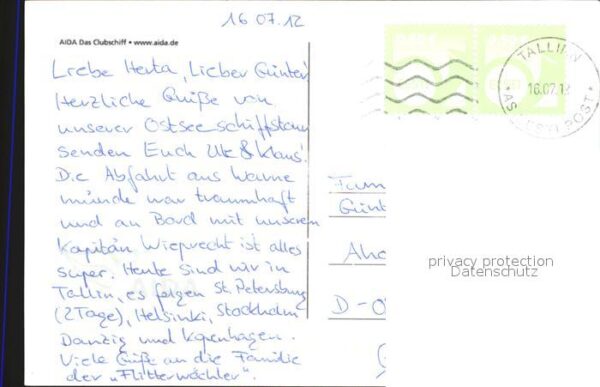 16.07.12
AIDA Das Clubschiff • www.aida.de
Liebe Herta, Lieber Günter!
Herzliche Grüße von
unserer Ostseeschiffstour
senden Euch Ute & Klaus!
Die Abfahrt aus Warne
münde war traumhaft
und an Bord mit unserem
Kapitän Wieprecht ist alles
super. Heute sind wir in
Tallin, es folgen St. Petersburg
(2 Tage), Helsinki, Stockholm
Danzig und Kopenhagen.
Viele Grüße an die Familie
der „Flitterwöchler".
TALLINN
16.07.12
AS EESTI POST
Fam
Günt
D-0
privacy protection
Datenschutz